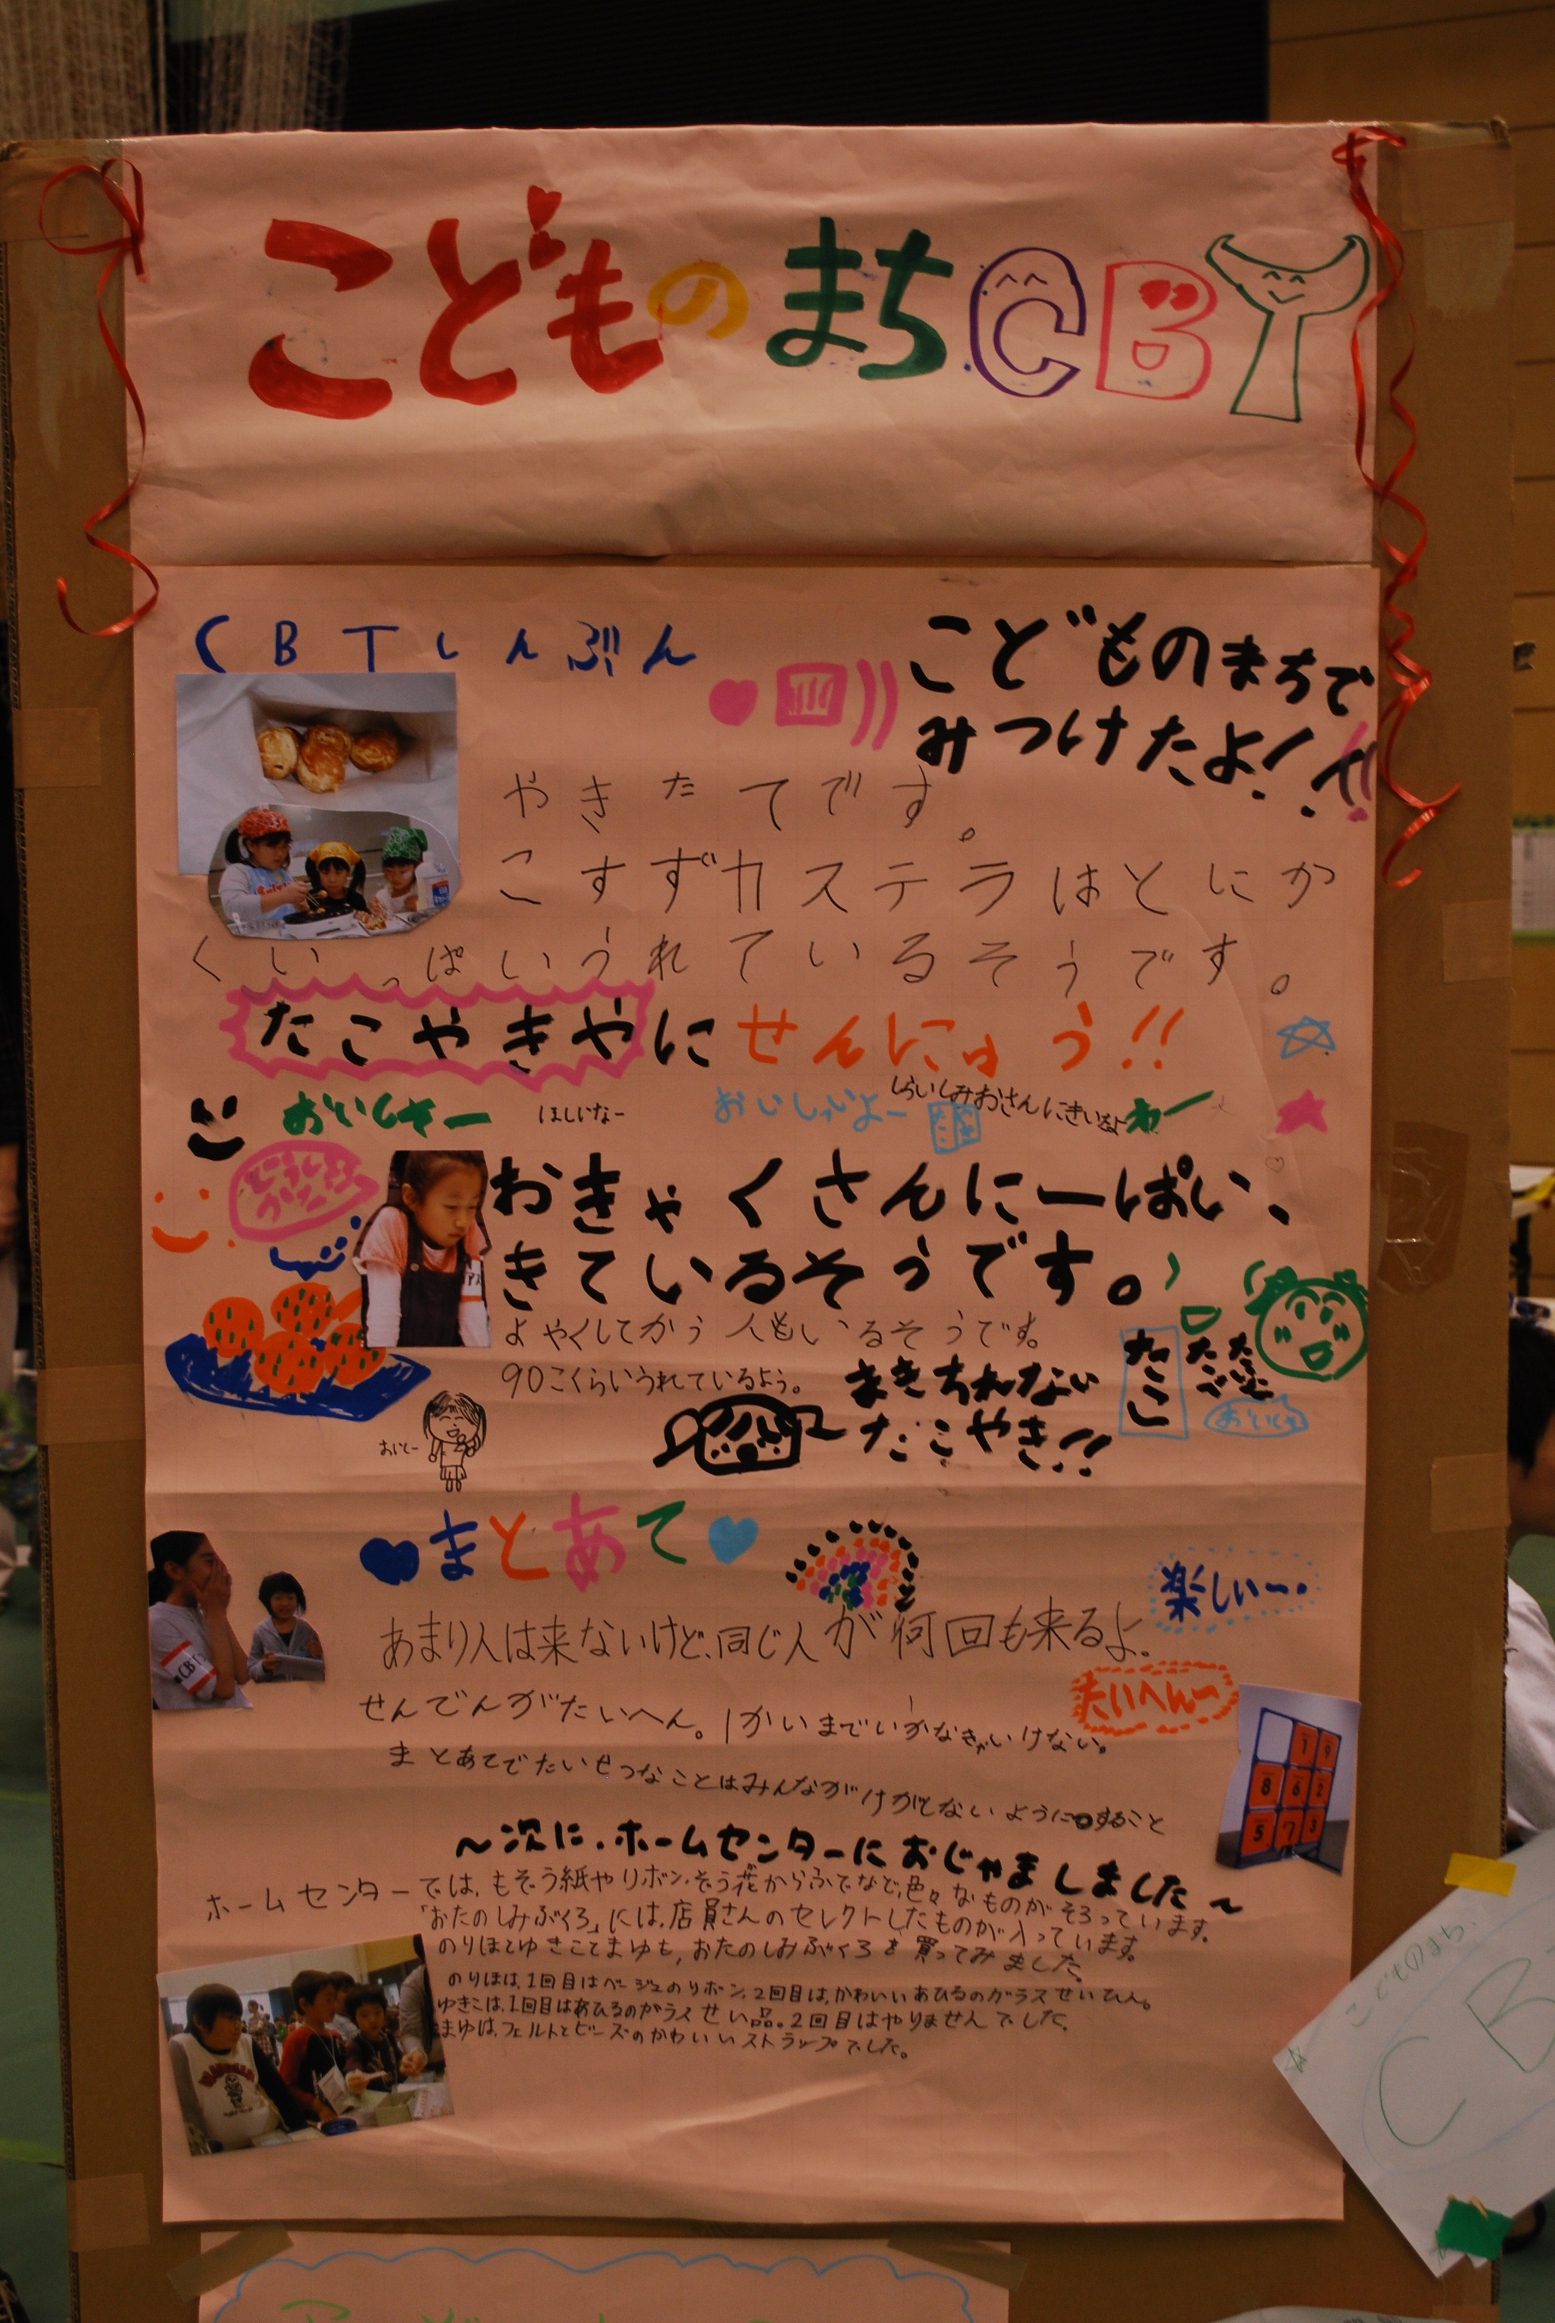 こどものまちCBT
CBTしんぶん
こどものまちで
みつけたよ!!!
やきたてです。
こすずカステラはとにか
くいっぱいうれているそうです。
たこやきやにせんにゅう!!
おいしそー
ほしいなー
おいしいよー
しらいしみおさんにきいたよ
おきゃくさんにーぱい、
きているそうです。
よやくしてかう人もいるそうです。
90こくらいうれているよう。
まきちれない
たこやき!!
たこ
まとあて
楽しいー
あまり人は来ないけど、同じ人が何回も来るよ。
たいへんー
せんでんがたいへん。1かいまでいかなきゃいけない。
まとあてでたいせつなことはみんながけがしないようにすること
1 9
8 6 2
5 7 3
CBT
～次に、ホームセンターにおじゃましました～
ホームセンターでは、もぞう紙やリボン、ぞう花からふでなど、色々なものがそろっています。
「おたのしみぶくろ」には、店員さんのセレクトしたものが入っています。
のりほとゆきことまゆも、おたのしみぶくろを買ってみました。
のりほは、1回目はベージュのリボン、2回目は、かわいいあひるのガラスせいひん。
ゆきこは、1回目はあひるのガラスせい品。2回目はやりませんでした。
まゆは、フェルトとビーズのかわいいストラップでした。
こどものまち
CB